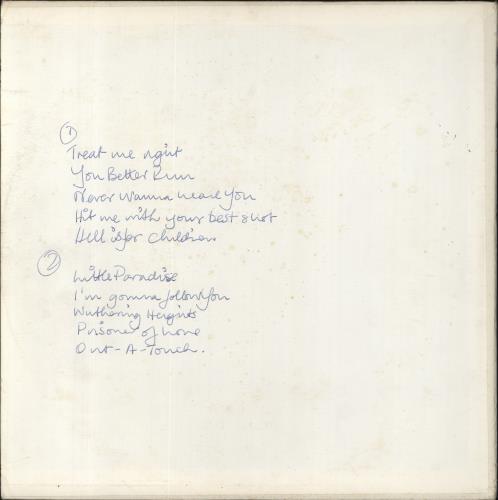 1
Treat me right
You Better Run
Never Wanna Leave You
Hit me with your best shot
Hell is for children
2
Little Paradise
I'm gonna follow you
Wuthering Heights
Prisoner of Love
Out-A-Touch.